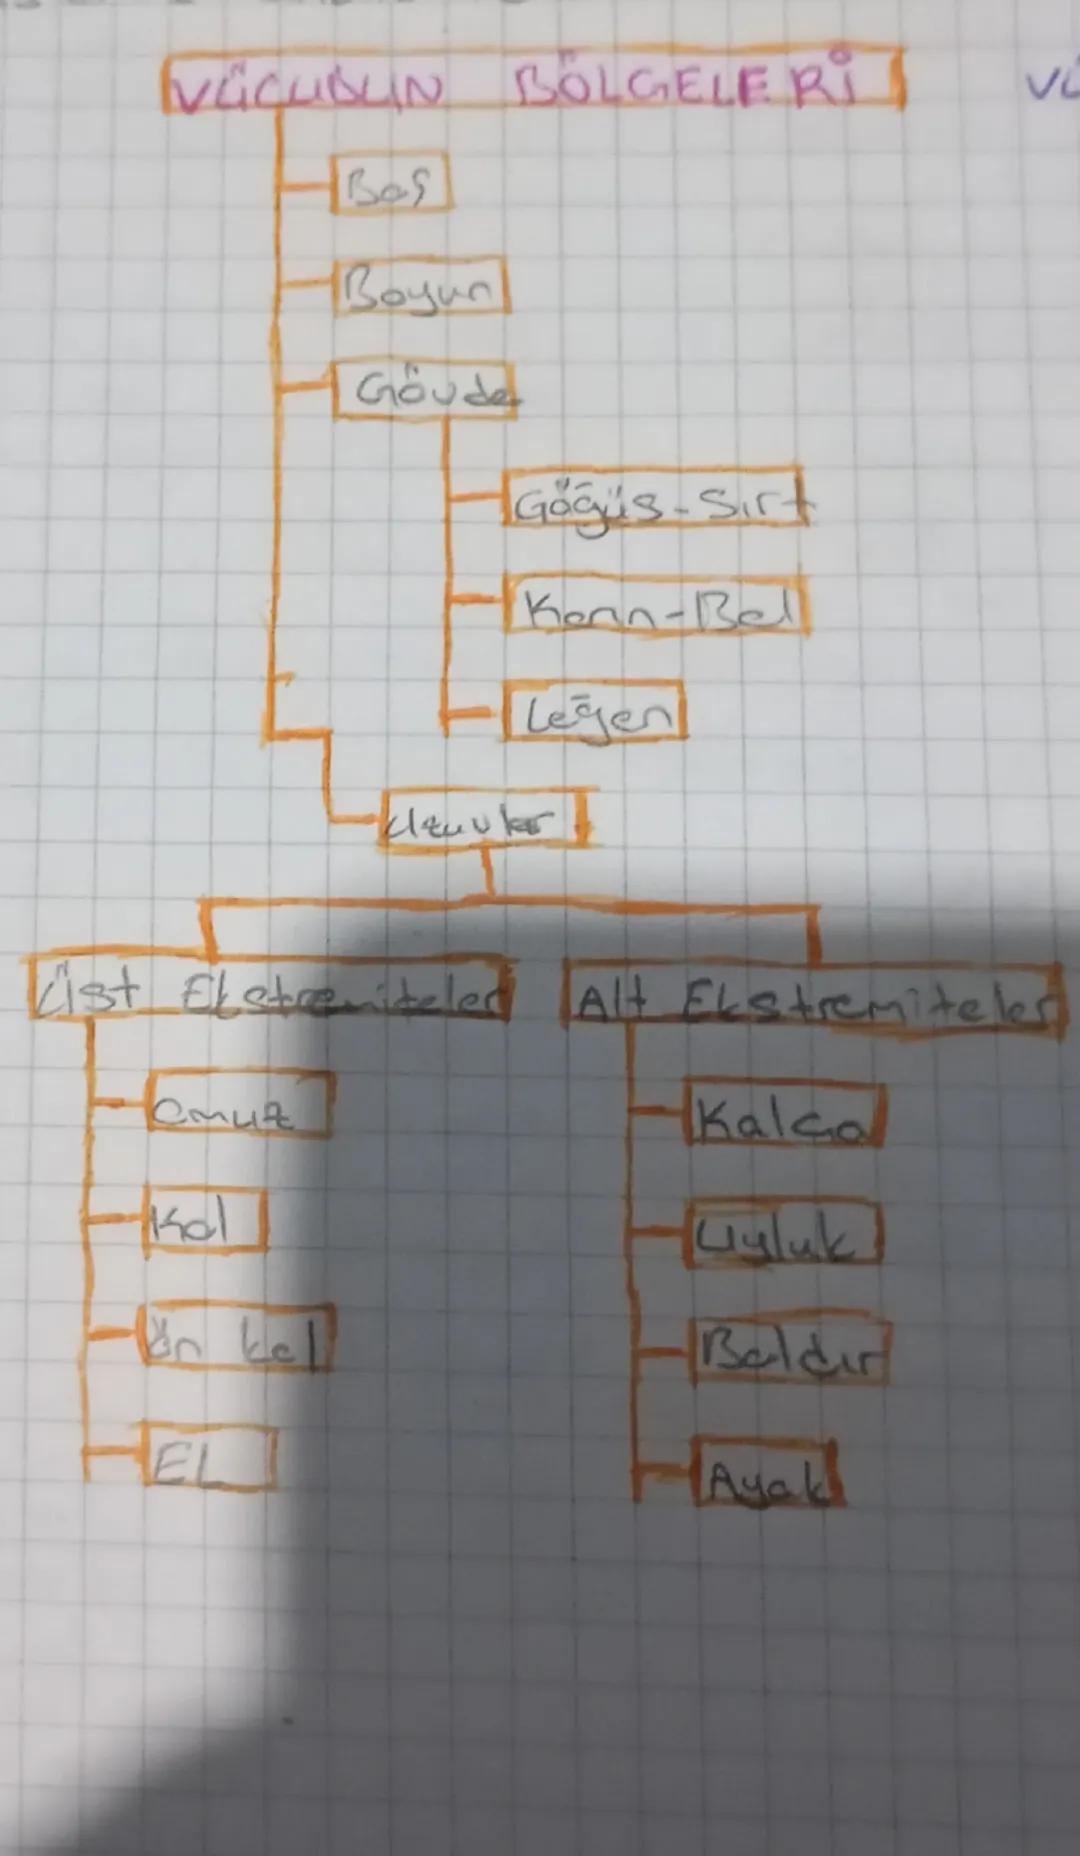 VÜCUDUN BÖLGELERİ
Baş
Boyun
Gövde
Göğüs-Sırt
Karın-Bel
Leğen
Uzuvlar
Üst Ekstremiteler
Alt Ekstremiteler
Omuz
Kalça
Kol
Uyluk
Ön kol
Baldır
EL
Ayak